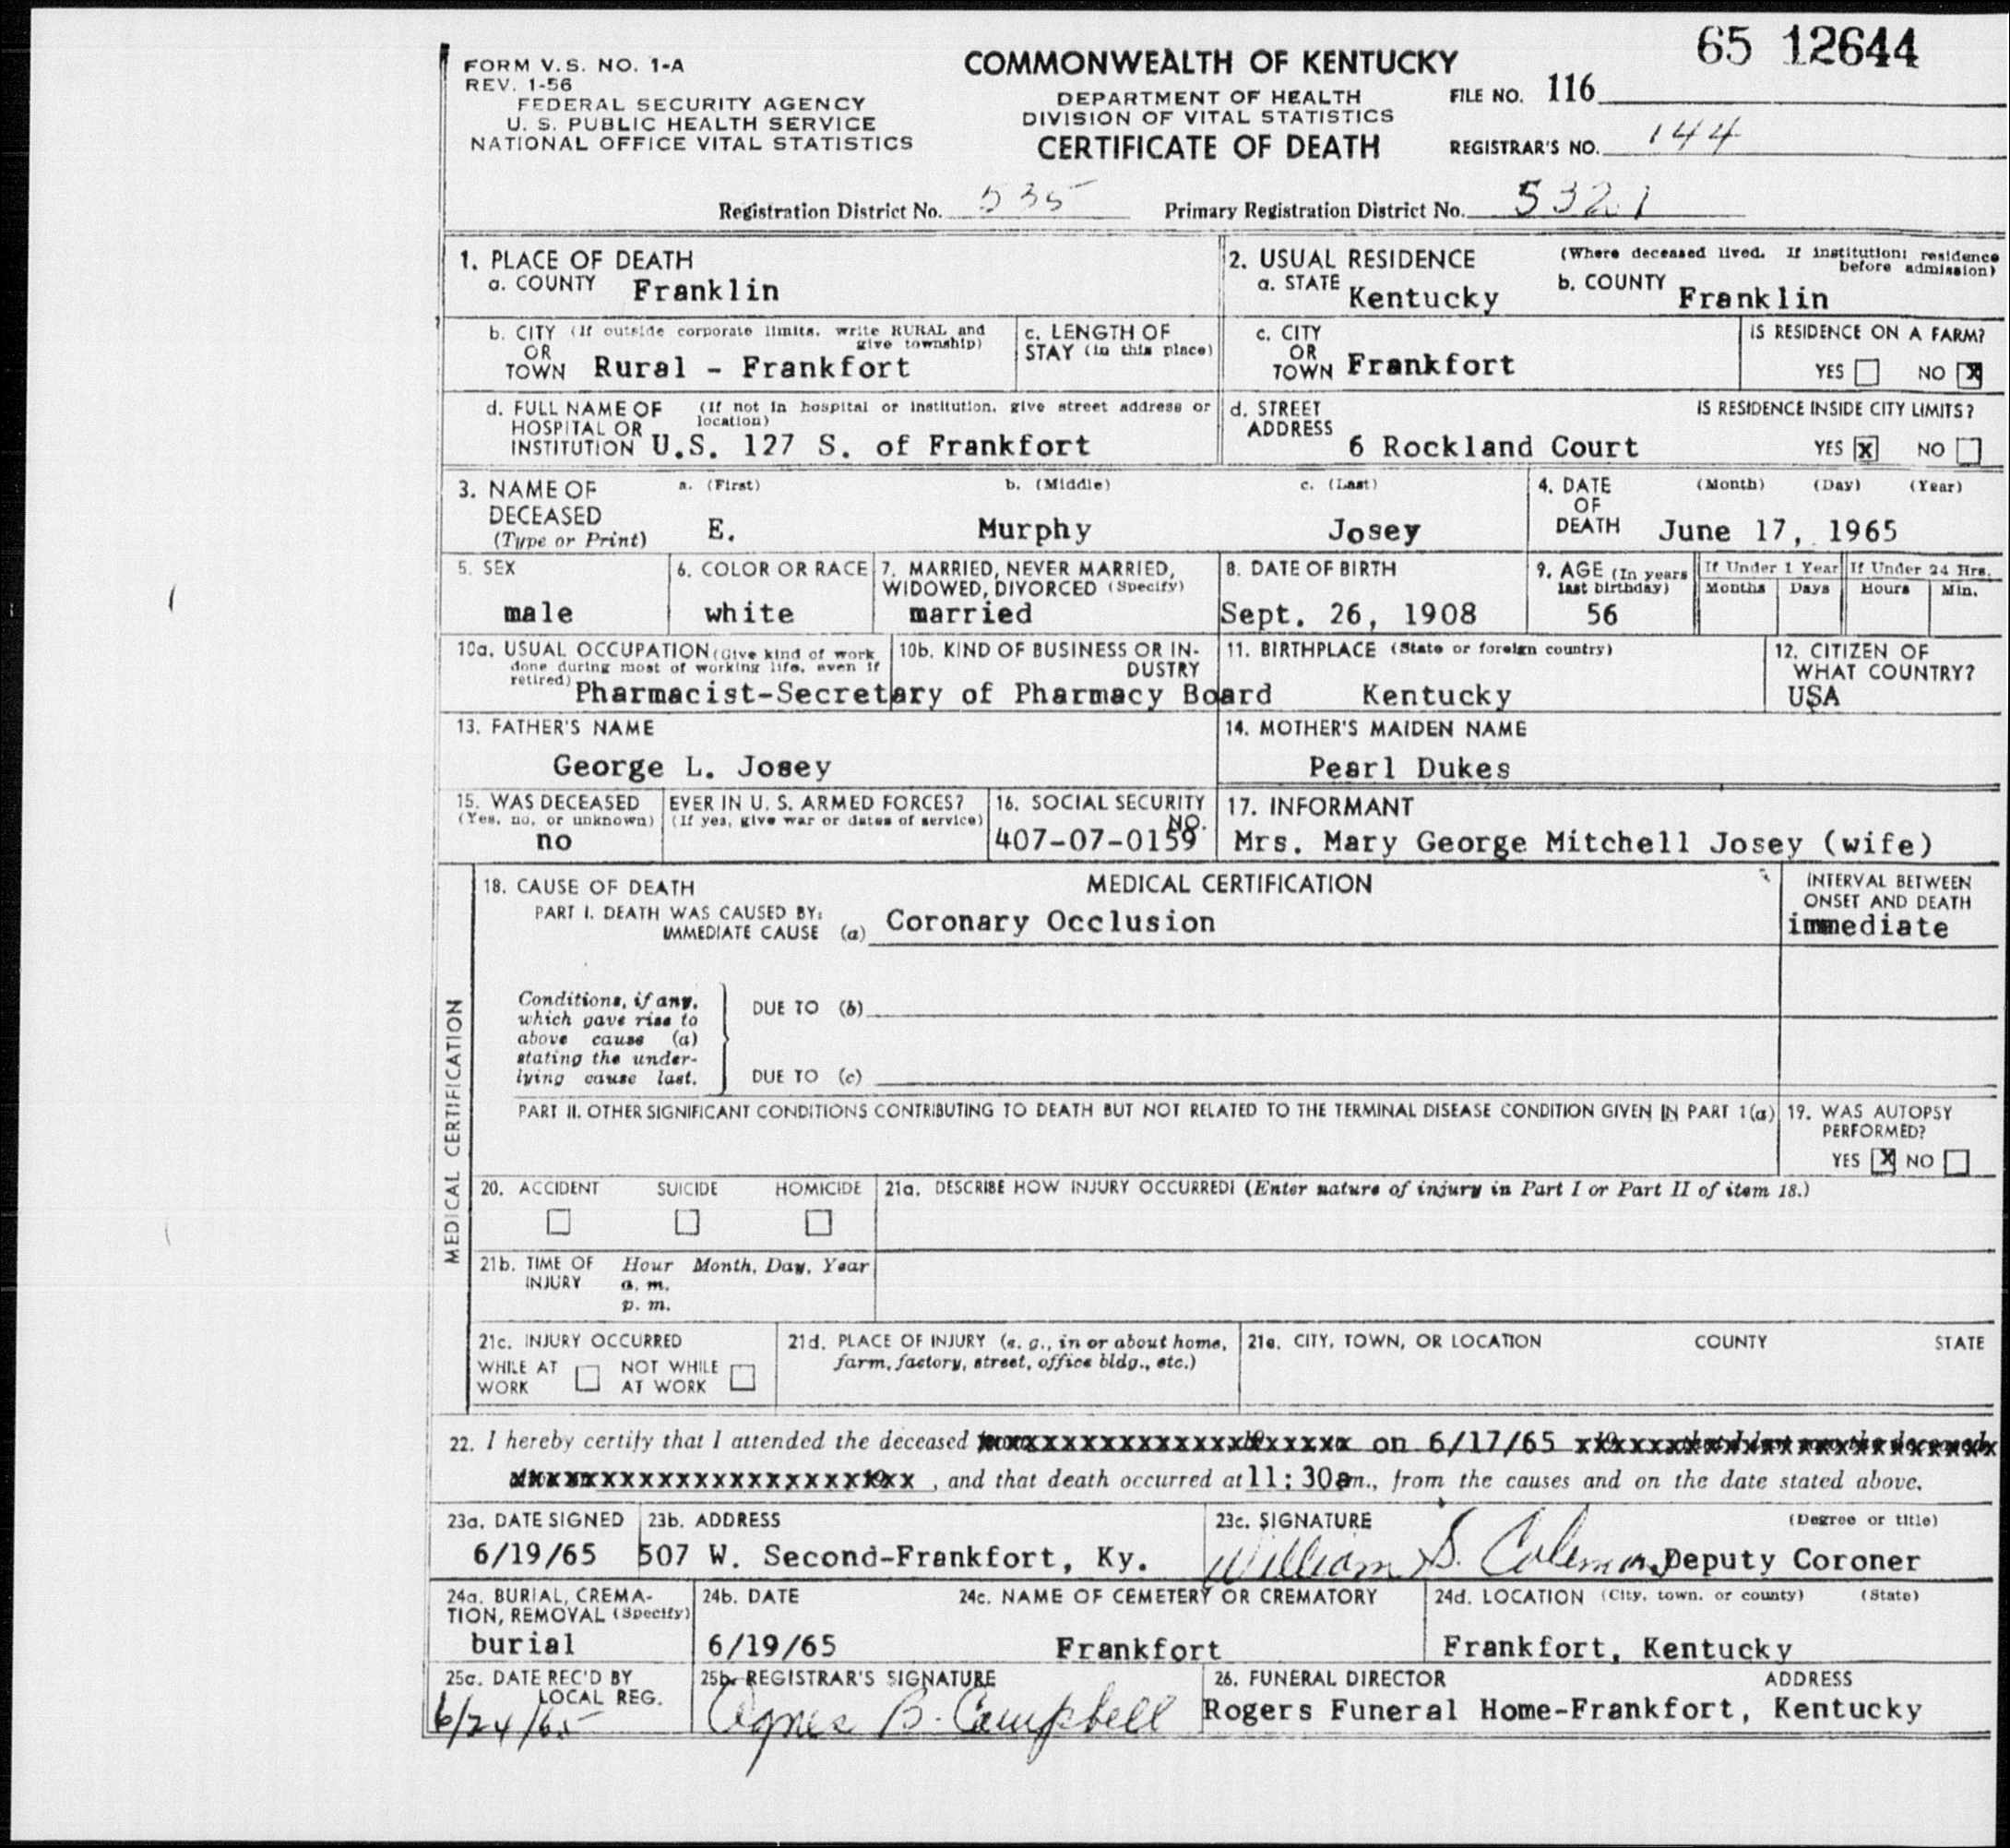 65 12644
FORM V. S. NO. 1-A
REV. 1-56
FEDERAL SECURITY AGENCY
U. S. PUBLIC HEALTH SERVICE
NATIONAL OFFICE VITAL STATISTICS
COMMONWEALTH OF KENTUCKY
DEPARTMENT OF HEALTH
DIVISION OF VITAL STATISTICS
CERTIFICATE OF DEATH
FILE NO. 116
REGISTRAR'S NO. 144
Registration District No. 535 Primary Registration District No. 5321
1. PLACE OF DEATH
a. COUNTY Franklin
2. USUAL RESIDENCE (Where deceased lived. If institution: residence before admission)
a. STATE Kentucky b. COUNTY Franklin
b. CITY (If outside corporate limits, write RURAL and give township)
OR
TOWN Rural - Frankfort
c. LENGTH OF
STAY (in this place)
c. CITY
OR
TOWN Frankfort
IS RESIDENCE ON A FARM?
YES NO X
d. FULL NAME OF (If not in hospital or institution, give street address or location)
HOSPITAL OR
INSTITUTION U.S. 127 S. of Frankfort
d. STREET
ADDRESS 6 Rockland Court
IS RESIDENCE INSIDE CITY LIMITS?
YES X NO
3. NAME OF
DECEASED
(Type or Print)
a. (First) b. (Middle) c. (Last)
E. Murphy Josey
4. DATE
OF
DEATH
(Month) (Day) (Year)
June 17, 1965
5. SEX
male
6. COLOR OR RACE
white
7. MARRIED, NEVER MARRIED,
WIDOWED, DIVORCED (Specify)
married
8. DATE OF BIRTH
Sept. 26, 1908
9. AGE (In years
last birthday)
56
If Under 1 Year If Under 24 Hrs.
Months Days Hours Min.
10a. USUAL OCCUPATION (Give kind of work
done during most of working life, even if
retired)
10b. KIND OF BUSINESS OR IN-
DUSTRY
Pharmacist-Secretary of Pharmacy Board
11. BIRTHPLACE (State or foreign country)
Kentucky
12. CITIZEN OF
WHAT COUNTRY?
USA
13. FATHER'S NAME
George L. Josey
14. MOTHER'S MAIDEN NAME
Pearl Dukes
15. WAS DECEASED EVER IN U. S. ARMED FORCES?
(Yes, no, or unknown) (If yes, give war or dates of service)
no
16. SOCIAL SECURITY
NO.
407-07-0159
17. INFORMANT
Mrs. Mary George Mitchell Josey (wife)
MEDICAL CERTIFICATION
18. CAUSE OF DEATH MEDICAL CERTIFICATION
PART I. DEATH WAS CAUSED BY:
IMMEDIATE CAUSE (a) Coronary Occlusion
INTERVAL BETWEEN
ONSET AND DEATH
immediate
Conditions, if any,
which gave rise to
above cause (a)
stating the under-
lying cause last.
DUE TO (b)
DUE TO (c)
PART II. OTHER SIGNIFICANT CONDITIONS CONTRIBUTING TO DEATH BUT NOT RELATED TO THE TERMINAL DISEASE CONDITION GIVEN IN PART 1(a)
19. WAS AUTOPSY
PERFORMED?
YES X NO
20. ACCIDENT SUICIDE HOMICIDE
21a. DESCRIBE HOW INJURY OCCURRED: (Enter nature of injury in Part I or Part II of item 18.)
21b. TIME OF
INJURY
Hour Month, Day, Year
a. m.
p. m.
21c. INJURY OCCURRED
WHILE AT
WORK
NOT WHILE
AT WORK
21d. PLACE OF INJURY (e. g., in or about home,
farm, factory, street, office bldg., etc.)
21e. CITY, TOWN, OR LOCATION COUNTY STATE
22. I hereby certify that I attended the deceased on 6/17/65
, and that death occurred at 11:30a m., from the causes and on the date stated above.
23a. DATE SIGNED
6/19/65
23b. ADDRESS
507 W. Second-Frankfort, Ky.
23c. SIGNATURE (Degree or title)
William S. Coleman Deputy Coroner
24a. BURIAL, CREMA-
TION, REMOVAL (Specify)
burial
24b. DATE
6/19/65
24c. NAME OF CEMETERY OR CREMATORY
Frankfort
24d. LOCATION (City, town, or county) (State)
Frankfort, Kentucky
25a. DATE REC'D BY
LOCAL REG.
6/24/65
25b. REGISTRAR'S SIGNATURE
Agnes B. Campbell
26. FUNERAL DIRECTOR ADDRESS
Rogers Funeral Home-Frankfort, Kentucky